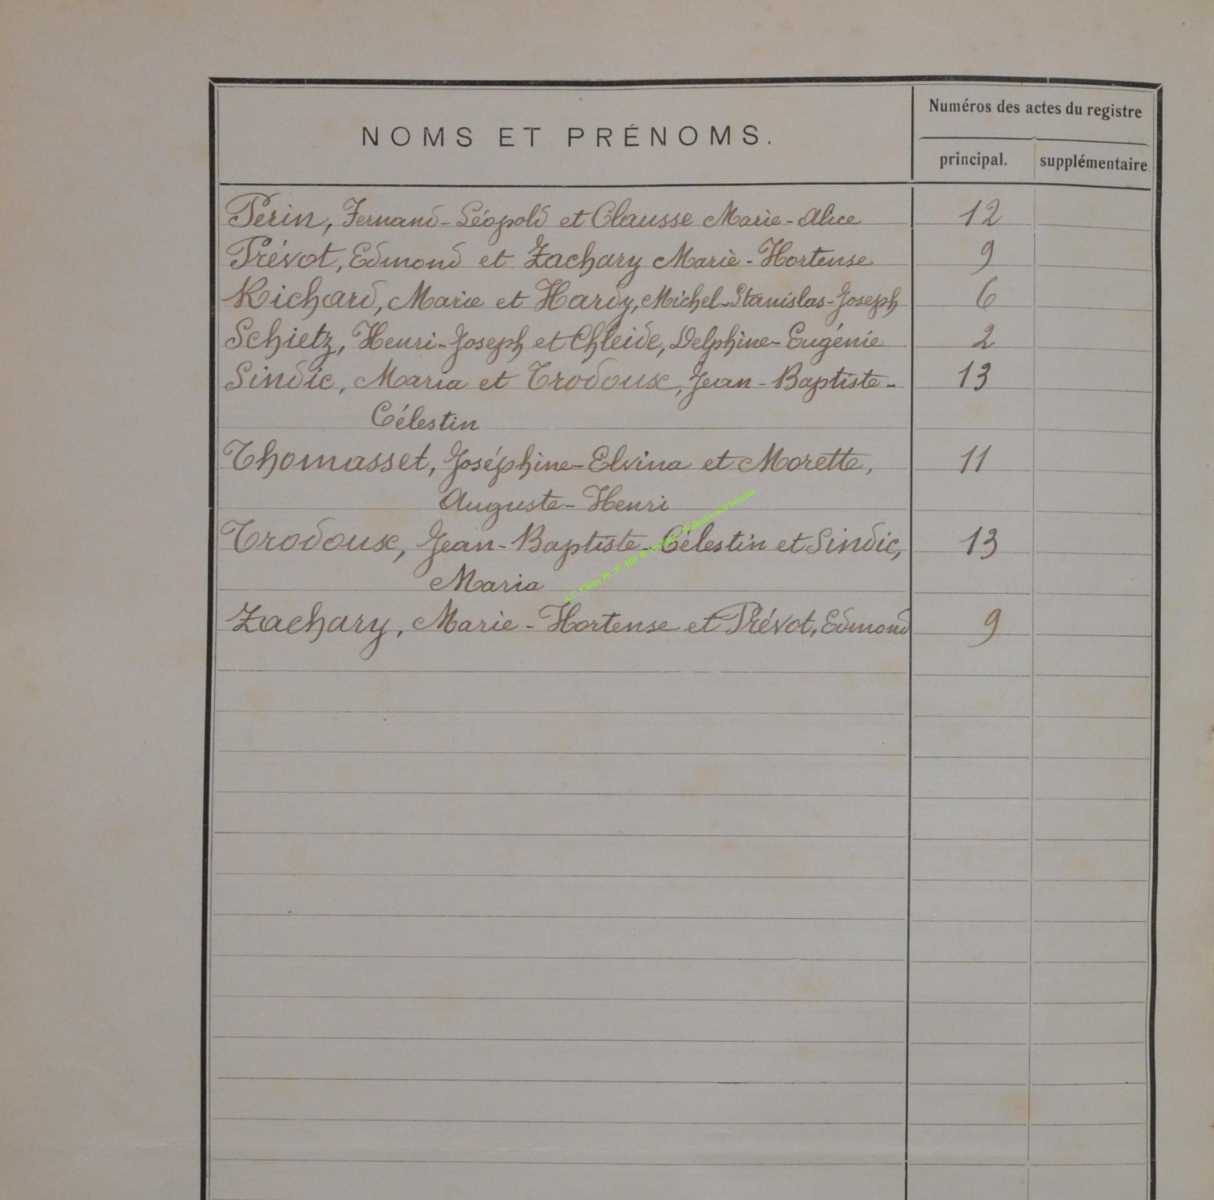 NOMS ET PRÉNOMS.
Numéros des actes du registre
principal. supplémentaire
Perin, Fernand-Léopold et Clausse Marie-Alice 12
Prévot, Edmond et Zachary Marie-Hortense 9
Richard, Marie et Hardy, Michel-Stanislas-Joseph 6
Schietz, Henri-Joseph et Chleide, Delphine-Eugénie 2
Sindic, Maria et Trodoux, Jean-Baptiste- 13
Célestin
Thomasset, Joséphine-Elvina et Morette, 11
Auguste-Henri
Trodoux, Jean-Baptiste-Célestin et Sindic, 13
Maria
Zachary, Marie-Hortense et Prévot, Edmond 9